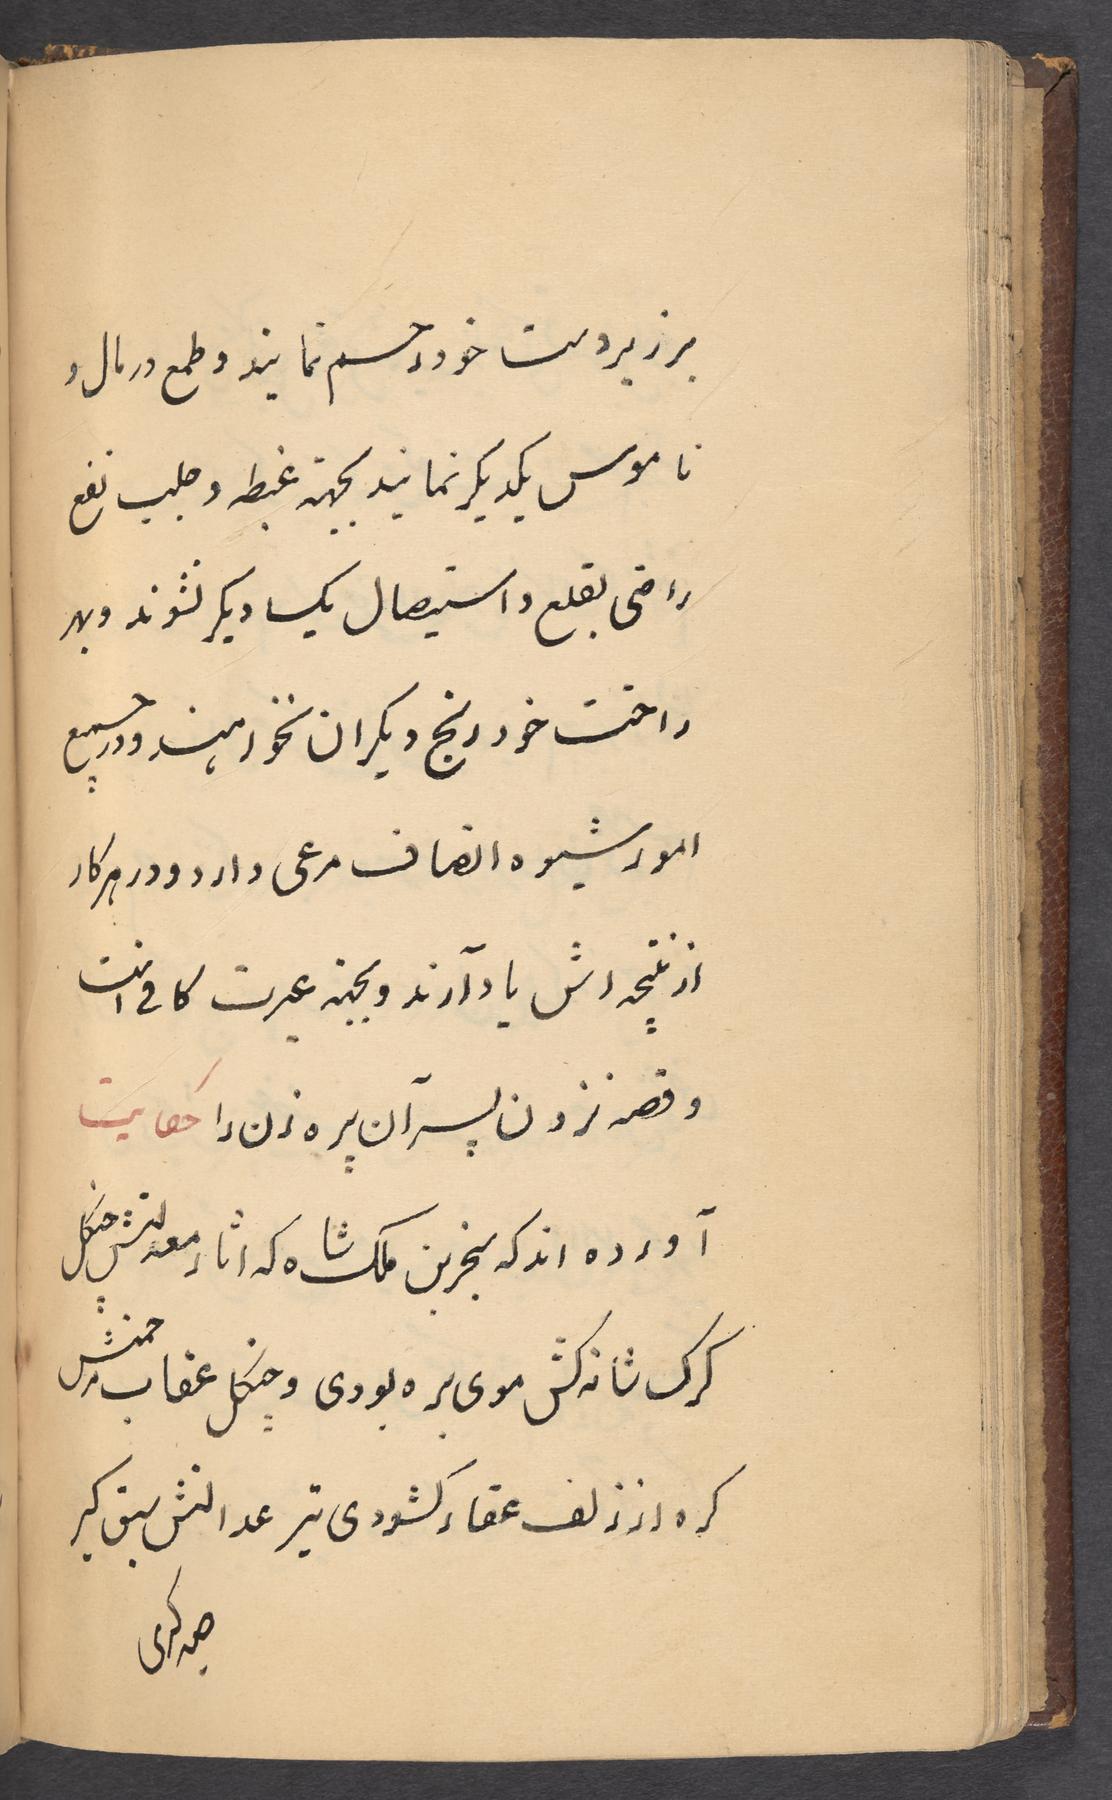 بر زیردست خود رحم نمایند و طمع در مال و
ناموس یکدیگر نمایند بجهته غبطه و جلب نفع
راضی بقلع و استیصال یکدیگر نشوند و بهر
راحت خود رنج دیگران نخواهند و در جمیع
امور شیوه انصاف مرعی دارد و در هر کار
از نتیجه اش یاد آرند و بجهته عبرت کافی است
و قصه نزدن پسر آن پیره زن را حکایت
آورده اند که سنجر بن ملک شاه که اثار معدلتش چنکل
کرک شانه کش موی بره بودی و چنکل عقاب
کره از زلف عقار کشودی تیر عدالتش سبق کیر